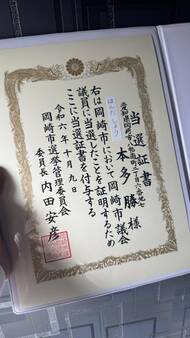 当選証書
本多 勝 様
右は岡崎市において岡崎市議会
議員に当選したことを証明するため
ここに当選証書を付与する
令和六年十月九日
岡崎市選挙管理委員会
委員長 内田安彦